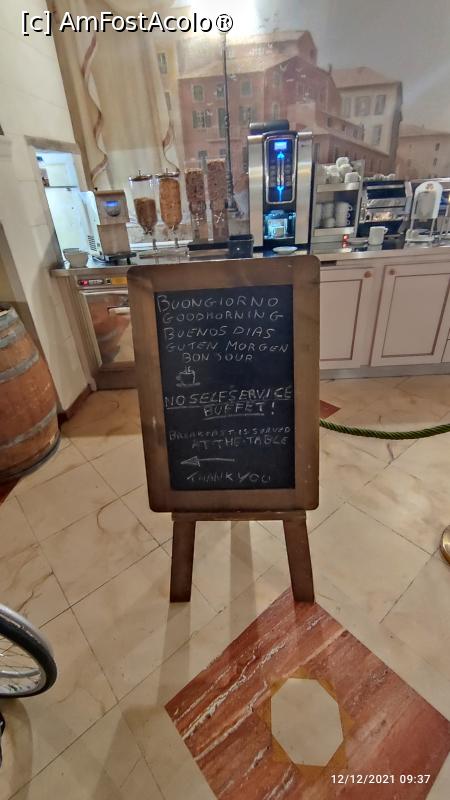 [c] AmFostAcolo®
BUONGIORNO
GOODMORNING
BUENOS DIAS
GUTEN MORGEN
BONJOUR
NO SELFSERVICE
BUFFET!
BREAKFAST IS SERVED
AT THE TABLE
THANK YOU
12/12/2021 09:37